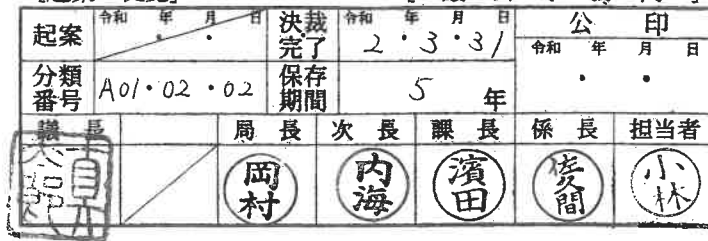 起案 令和 年 月 日 決裁完了 令和 年 月 日 2・3・31 公印
令和 年 月 日
分類番号 A01・02・02 保存期間 5年
議長 局長 次長 課長 係長 担当者
岡村 内海 濱田 佐久間 小林